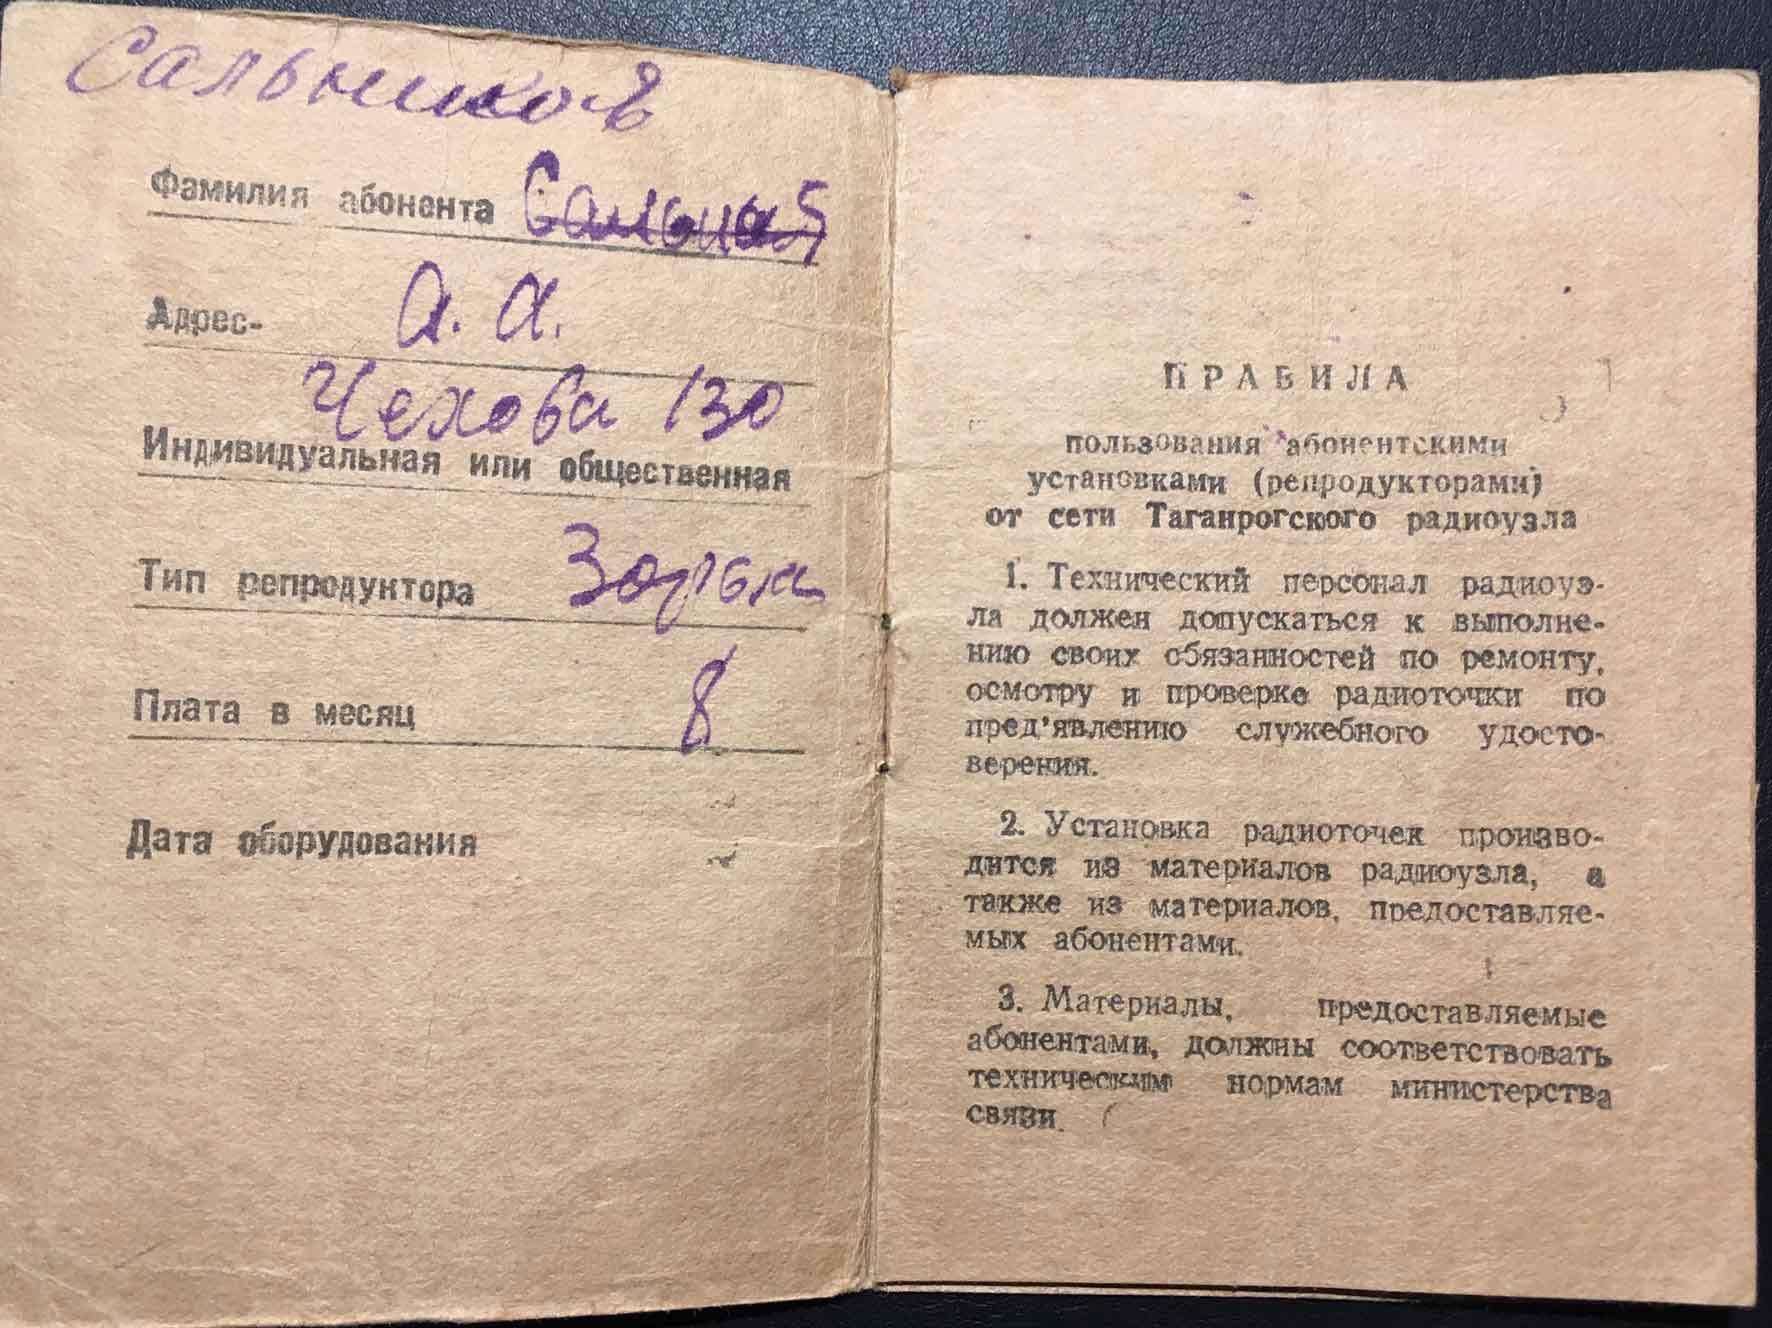 Сальников
Фамилия абонента
А. А.
Адрес-
Чехова 130
Индивидуальная или общественная
Тип репродуктора Зорька
Плата в месяц 8
Дата оборудования
ПРАВИЛА
пользования абонентскими
установками (репродукторами)
от сети Таганрогского радиоузла
1. Технический персонал радиоуз-
ла должен допускаться к выполне-
нию своих обязанностей по ремонту,
осмотру и проверке радиоточки по
пред'явлению служебного удосто-
верения.
2. Установка радиоточек произво-
дится из материалов радиоузла, а
также из материалов, предоставляе-
мых абонентами.
3. Материалы, предоставляемые
абонентами, должны соответствовать
техническим нормам министерства
связи.